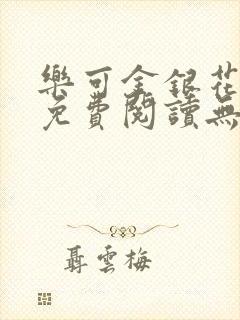 樂可金銀花
免費閱讀無
聶雲梅